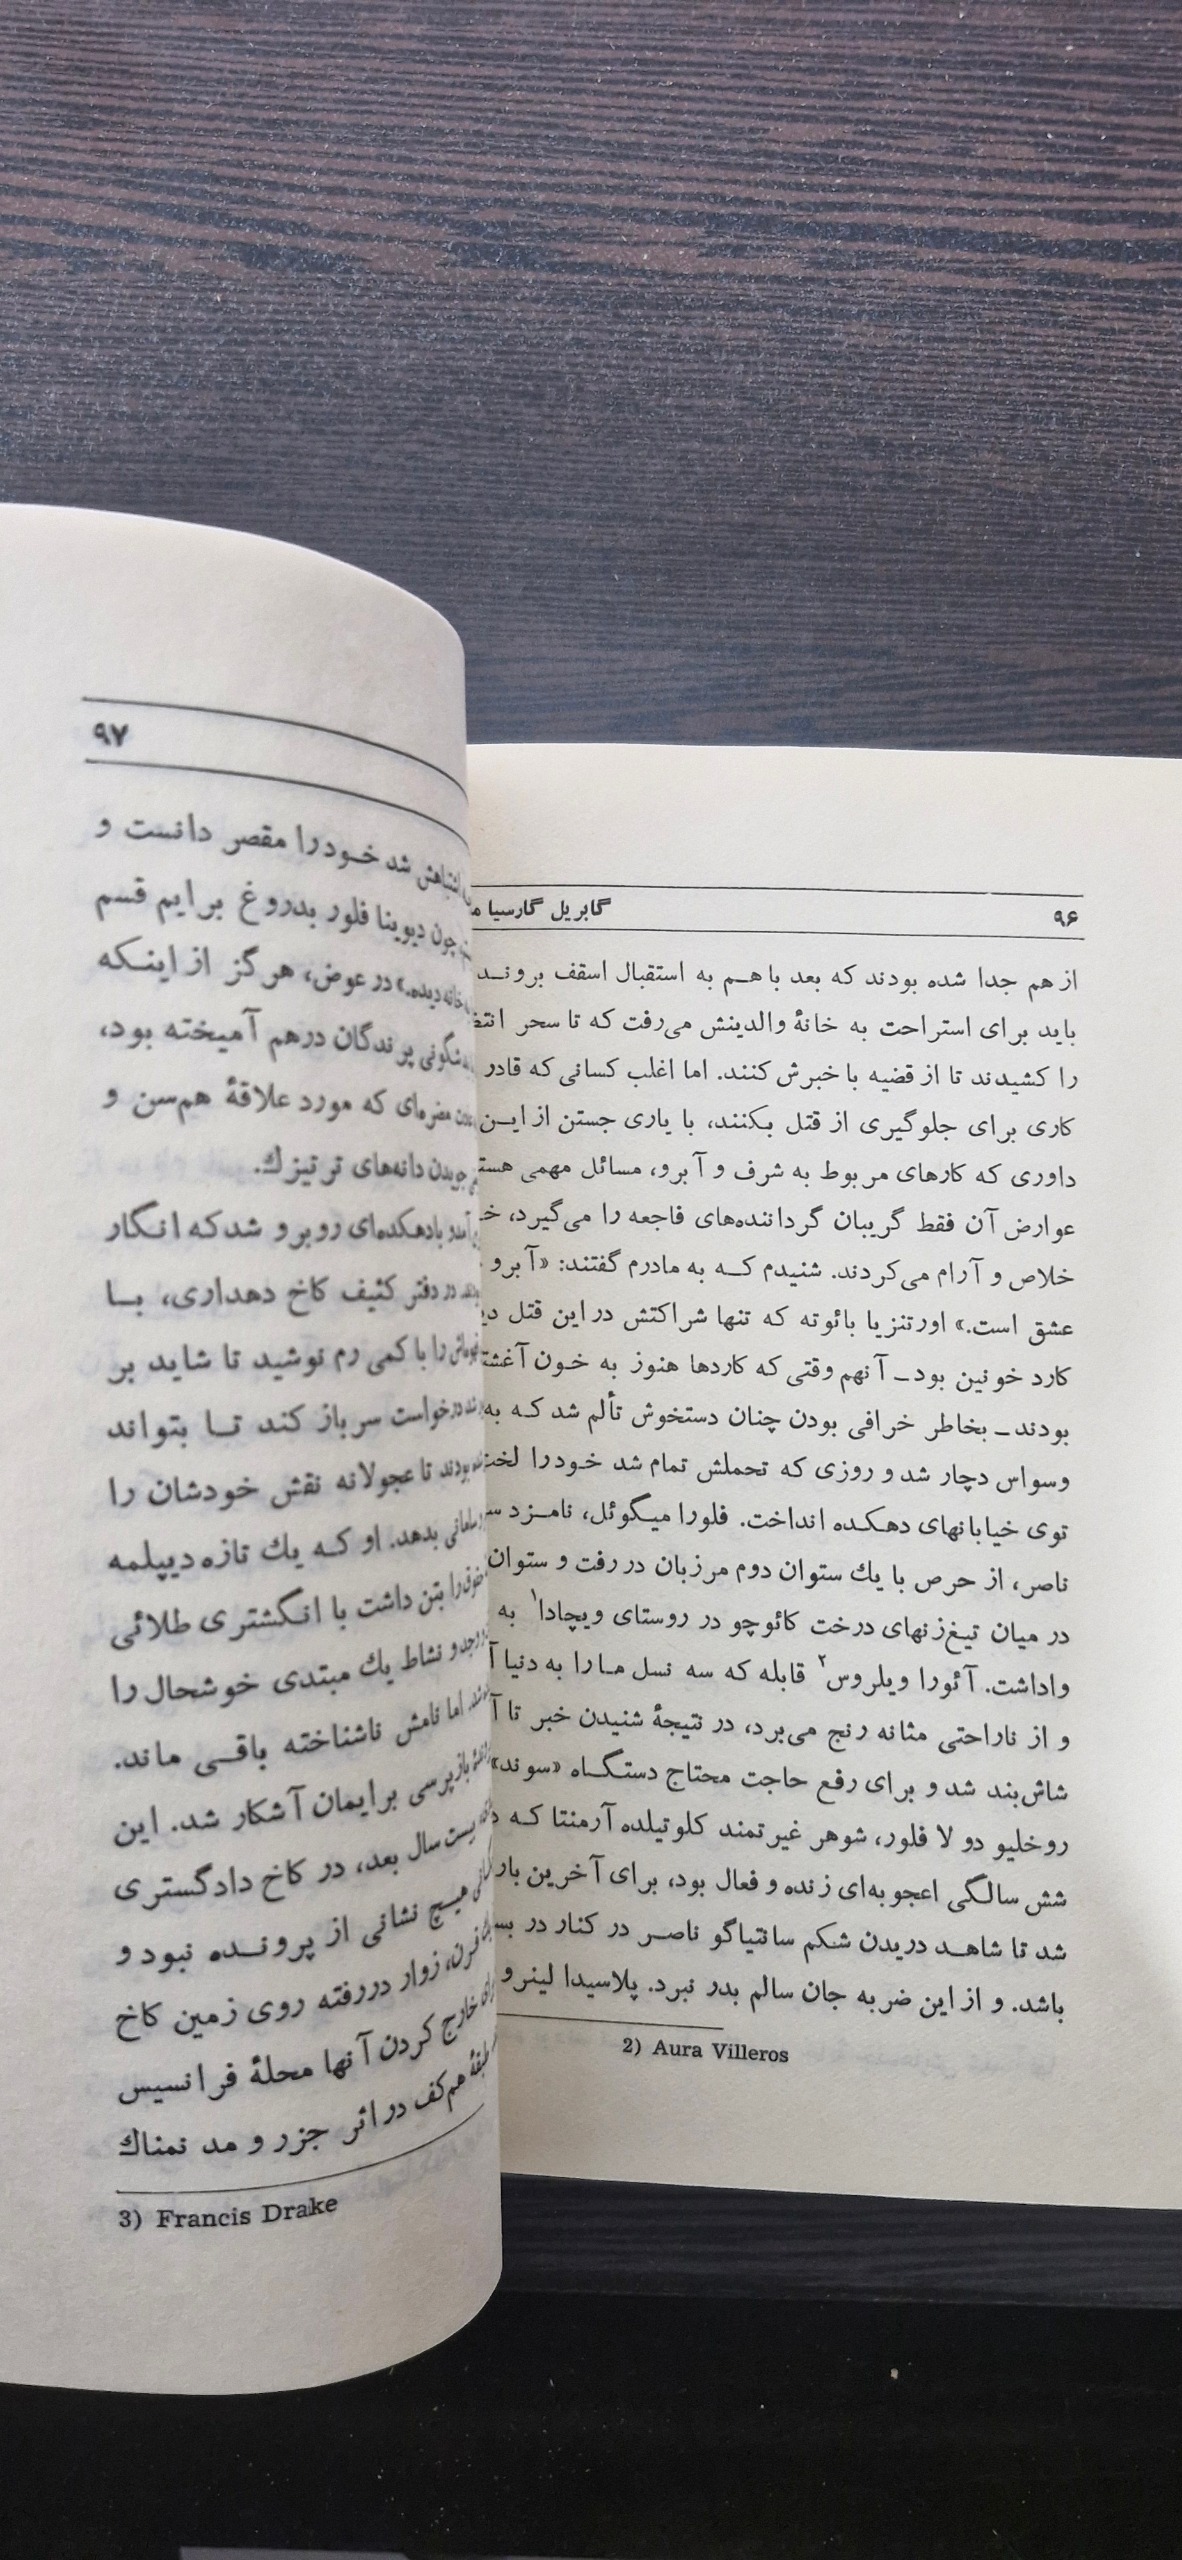 ۹۶
گابریل گارسیا
از هم جدا شده بودند که بعد با هم به استقبال اسقف بروند
باید برای استراحت به خانهٔ والدینش می‌رفت که تا سحر
را کشیدند تا از قضیه با خبرش کنند. اما اغلب کسانی که قادر
کاری برای جلوگیری از قتل بکنند، با یاری جستن از این
داوری که کارهای مربوط به شرف و آبرو، مسائل مهمی
عوارض آن فقط گریبان گرداننده‌های فاجعه را می‌گیرد،
خلاص و آرام می‌کردند. شنیدم که به مادرم گفتند: «آبرو
عشق است.» اورتنزیا بائوته که تنها شراکتش در این قتل
کارد خونین بود ـ آنهم وقتی که کاردها هنوز به خون
بودند ـ بخاطر خرافی بودن چنان دستخوش تألم شد که
وسواس دچار شد و روزی که تحملش تمام شد خود را
توی خیابانهای دهکده انداخت. فلورا میگوئل، نامزد
ناصر، از حرص با یك ستوان دوم مرزبان در رفت و ستوان
در میان تیغ‌زنهای درخت کائوچو در روستای ویچادا۱ به
واداشت. آئورا ویلروس۲ قابله که سه نسل ما را به دنیا
و از ناراحتی مثانه رنج می‌برد، در نتیجهٔ شنیدن خبر تا
شاش‌بند شد و برای رفع حاجت محتاج دستگاه «سوند»
روخلیو دو لا فلور، شوهر غیرتمند کلوتیلده آرمنتا که
شش سالگی اعجوبه‌ای زنده و فعال بود، برای آخرین بار
شد تا شاهد دریدن شکم سانتیاگو ناصر در کنار در
باشد. و از این ضربه جان سالم بدر نبرد. پلاسیدا لینرو
2) Aura Villeros
۹۷
اشتباهش شد خود را مقصر دانست و
چون دیوینا فلور بدروغ برایم قسم
خانه دیده.» در عوض، هرگز از اینکه
شگونی پرندگان درهم آمیخته بود،
مضره‌ای که مورد علاقهٔ هم‌سن و
جویدن دانه‌های ترتیزك.
آمد و با دهکده‌ای روبرو شد که انگار
در دفتر کثیف کاخ دهداری، با
را با کمی رم نوشید تا شاید بر
درخواست سرباز کند تا بتواند
بودند تا عجولانه نقش خودشان را
بدهد. او که یك تازه دیپلمه
را بتن داشت با انگشتری طلائی
وجد و نشاط یك مبتدی خوشحال را
اما نامش ناشناخته باقی ماند.
بازپرسی برایمان آشکار شد. این
بیست سال بعد، در کاخ دادگستری
هیچ نشانی از پرونده نبود و
قرن، زوار دررفته روی زمین کاخ
خارج کردن آنها محلهٔ فرانسیس
طبقهٔ هم‌کف در اثر جزر و مد نمناك
3) Francis Drake